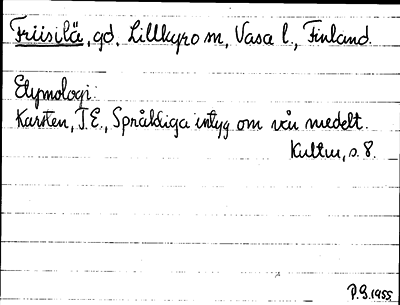 Friisilä, gd. Lillkyro sn, Vasa l., Finland.
Etymologi:
Karsten, T.E., Språkliga intyg om vår medelt.
Kultur, s. 8.
P.S. 1955